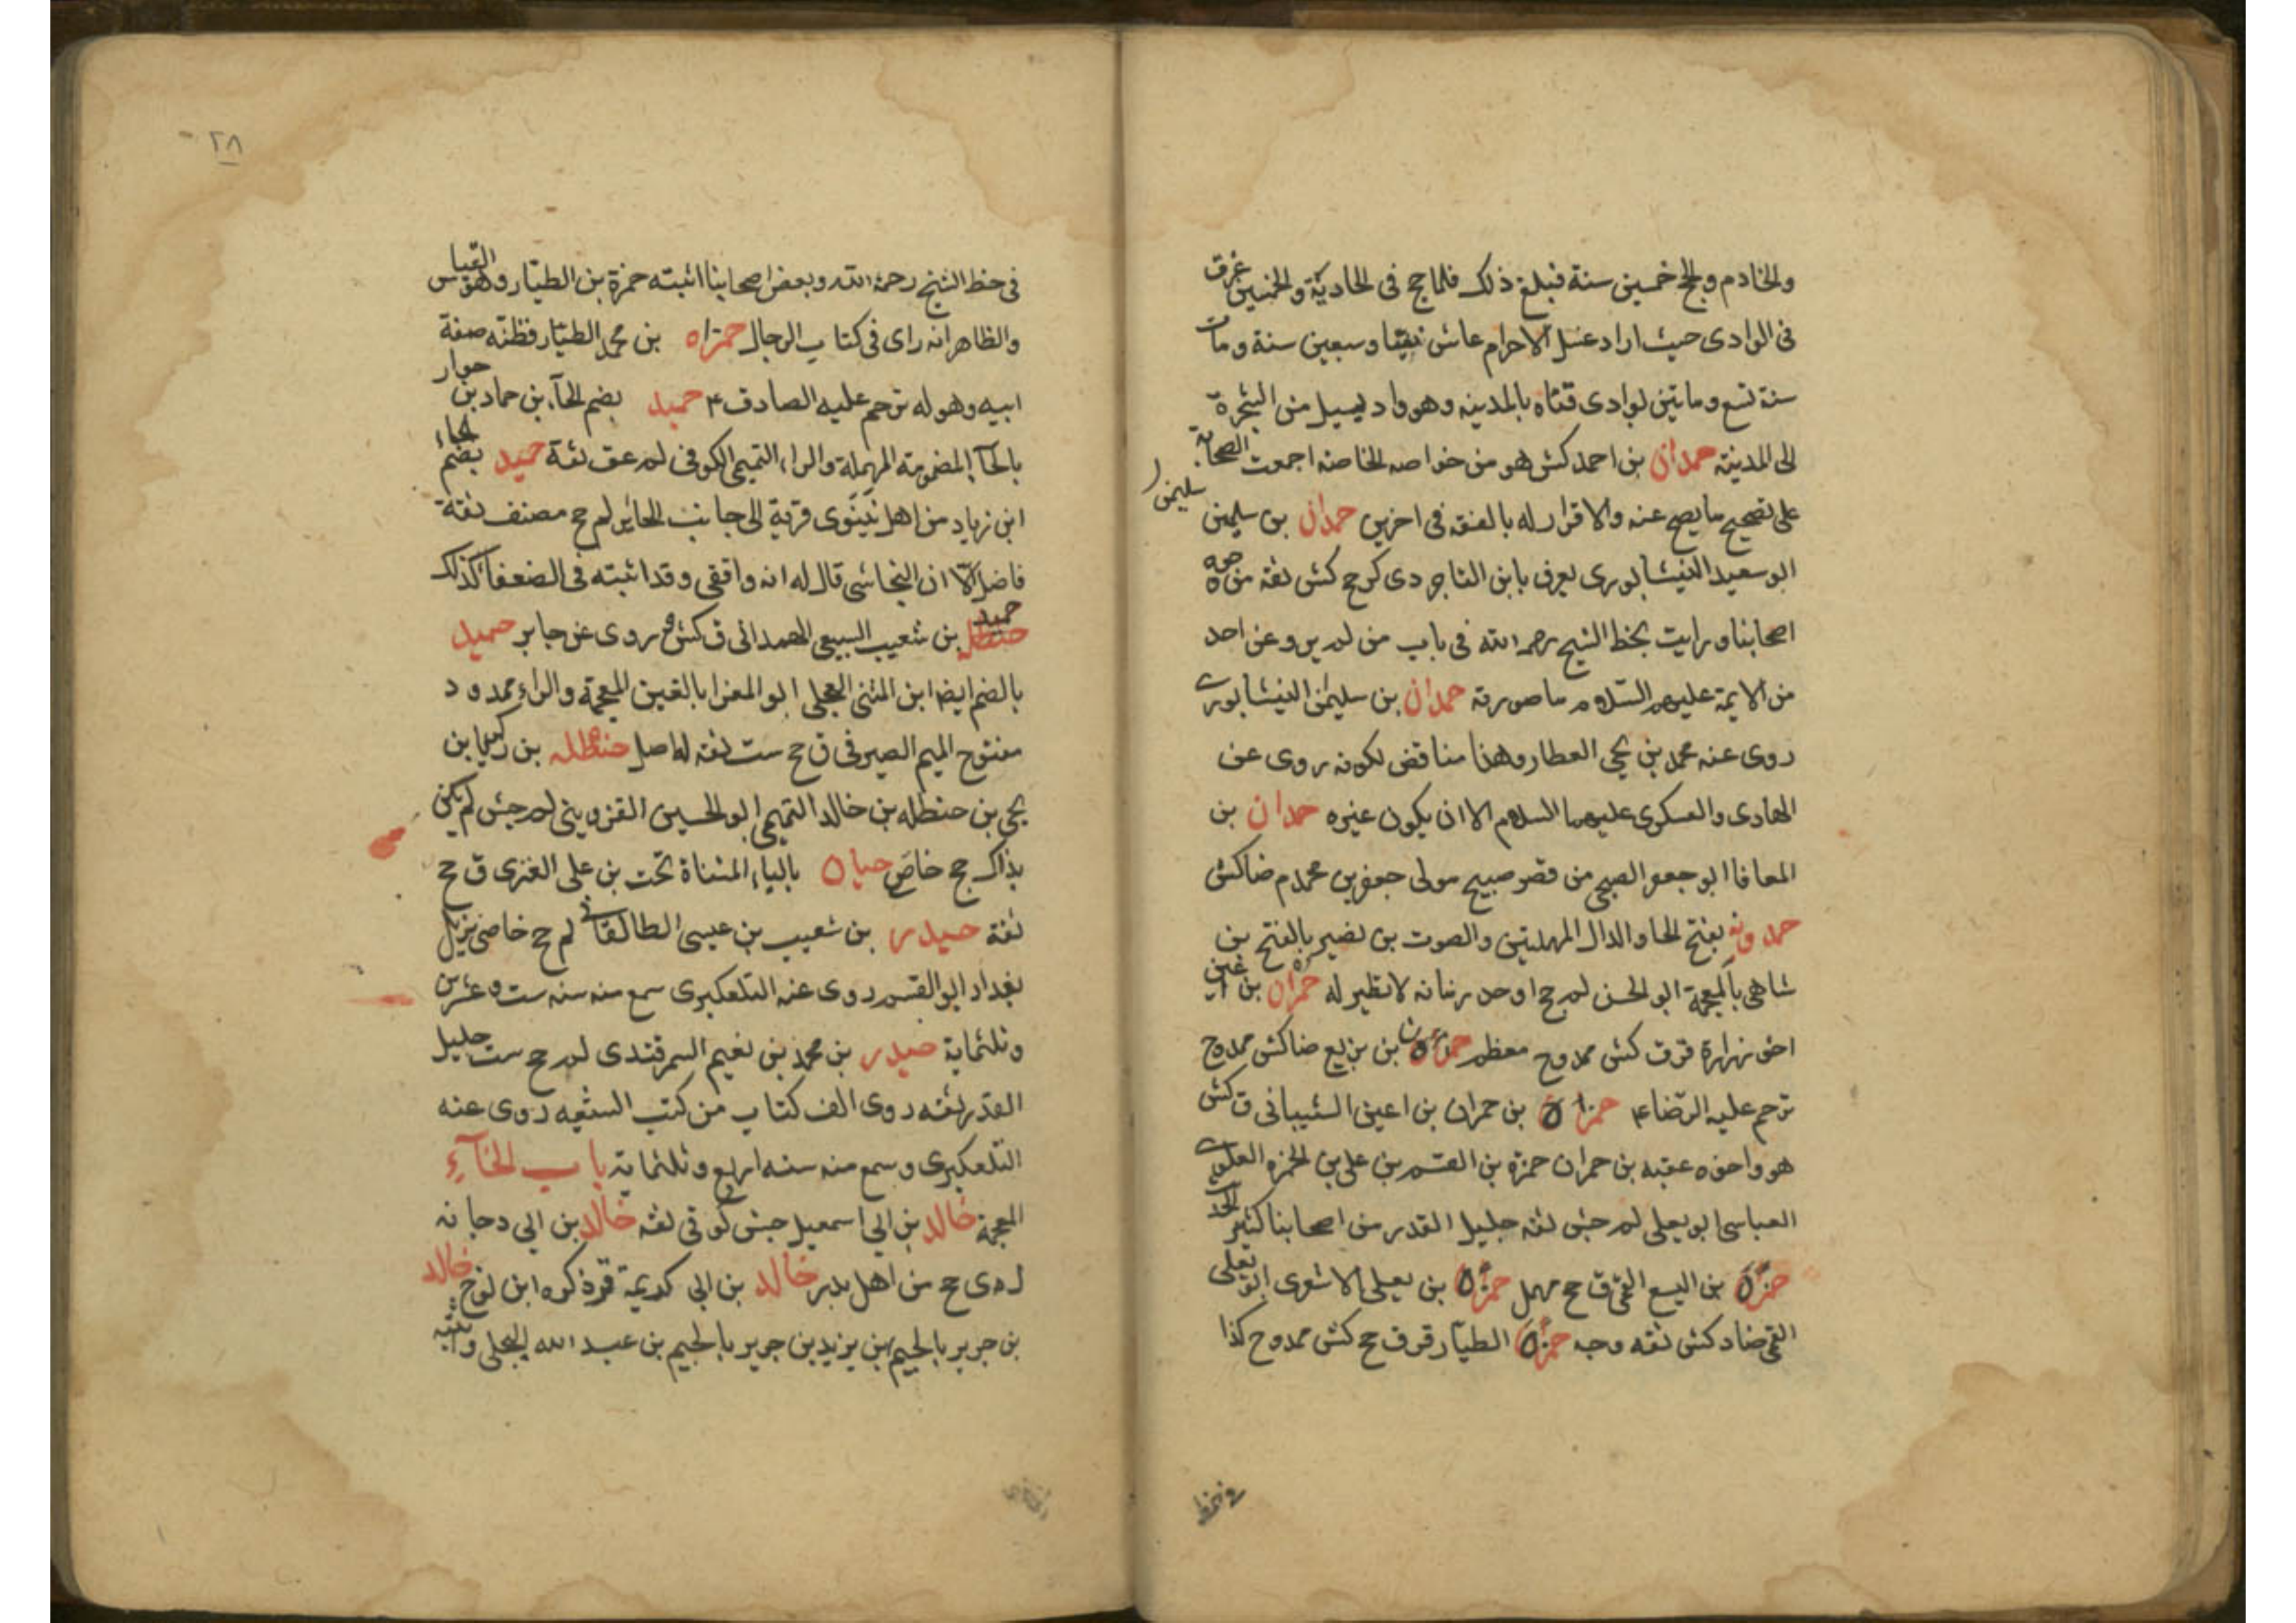 والخادم والحج خمسين سنة فبلغ ذلك فلما حج فى الحادية والخمسين غرق
فى الوادى حيث اراد غسل الاحرام عاش نيفا وسبعين سنة ومات
سنة تسع ومايتين لوادى قناة بالمدينه وهو واد يسيل من الشجرة
الى المدينه حمدان بن احمد كش هو من خواصه الخاصه اجمعت الصحابة
على تصحيح ما يصح عنه والاقرار له بالفقه فى اخرين حمدان بن سليمن
سليمن
ابو سعيد النيشابورى يعرف بابن التاجر دى كر جح كش ثقه من
اصحابنا ورايت بخط الشيخ رحمه الله فى باب من لم يرو عن احد
من الايمة عليهم السلام ما صورته حمدان بن سليمن النيشابورى
روى عنه محمد بن يحيى العطار وهذا مناقض لكونه روى عن
الهادى والعسكرى عليهما السلام الا ان يكون غيره حمدان بن
المعافا ابو جعفر الصبحى من قصر صبيح مولى جعفر بن محمد م ضا كش
حمدويه بفتح الحا والدال المهملتين والصوت بن نصير بالفتح بن
شاهى بالمعجمة ابو الحسن لم جح اوحد زمانه لا نظير له حمران بن اعين
اخو زرارة قر ق كش ممدوح معظم حمزة بن بزيع ضا كش ممدوح
ترحم عليه الرضا ع حمزة بن حمران بن اعين الشيبانى ق كش
هو واخوه عقبه بن حمران حمزة بن القسم بن على بن الحمزه العلوى
العباسى ابو يعلى لم جش ثقه جليل القدر من اصحابنا كثير الحد
حمزة بن اليسع القمى ق جح مهمل حمزة بن يعلى الاشعرى ابو يعلى
القمى ضا د كش ثقه وجه حمزة الطيار قر ق جح كش ممدوح كذا
٢٨
فى خط الشيخ رحمه الله وبعض اصحابنا اثبته حمزة بن الطيار وهو القياس
والظاهر انه راى فى كتاب الرجال حمزاه بن محمد الطيار فظنه صفة
ابيه وهو له ترحم عليه الصادق ع حميد بضم الحآء بن حماد بن حوار
بالحآء المضمومة المهملة والراء التميمى الكوفى لم عق ثقة حميد بضم الحاء
ابن زياد من اهل نينوى قرية الى جانب الحاير لم جح مصنف ثقة
فاضل الا ان النجاشى قال له انه واقفى وقد اثبته فى الضعفا كذلك
حميد بن شعيب السبيعى الهمدانى ق كش روى عن جابر حميد
بالضم ايضا ابن المثنى العجلى ابو المغرا بالغين المعجمة والراء ممدود
مفتوح الميم الصيرفى ق جح ست ثقه له اصل حنظله بن زكريا بن
يحيى بن حنظله بن خالد التميمى ابو الحسين القزوينى لم جش لم يكن
بذاك جح خاص حيان بالياء المثناة تحت بن على العنزى ق جح
ثقة حيدر بن شعيب بن عيسى الطالقانى لم جح خاصى نزيل
بغداد ابو القسم روى عنه التلعكبرى سمع منه سنه ست وعشرين
وثلثماية حيدر بن محمد بن نعيم السمرقندى لم جح ست جليل
القدر ثقه روى الف كتاب من كتب الشيعه روى عنه
التلعكبرى وسمع منه سنه اربع وثلثماية باب الخآء
المعجمة خالد بن ابى اسمعيل جش كوفى ثقه خالد بن ابى دجانه
ل دى جح من اهل بدر خالد بن ابى كريمة قر ذكره ابن نوح خالد
بن جرير بالجيم بن يزيد بن جرير بالجيم بن عبد الله البجلى واثبته